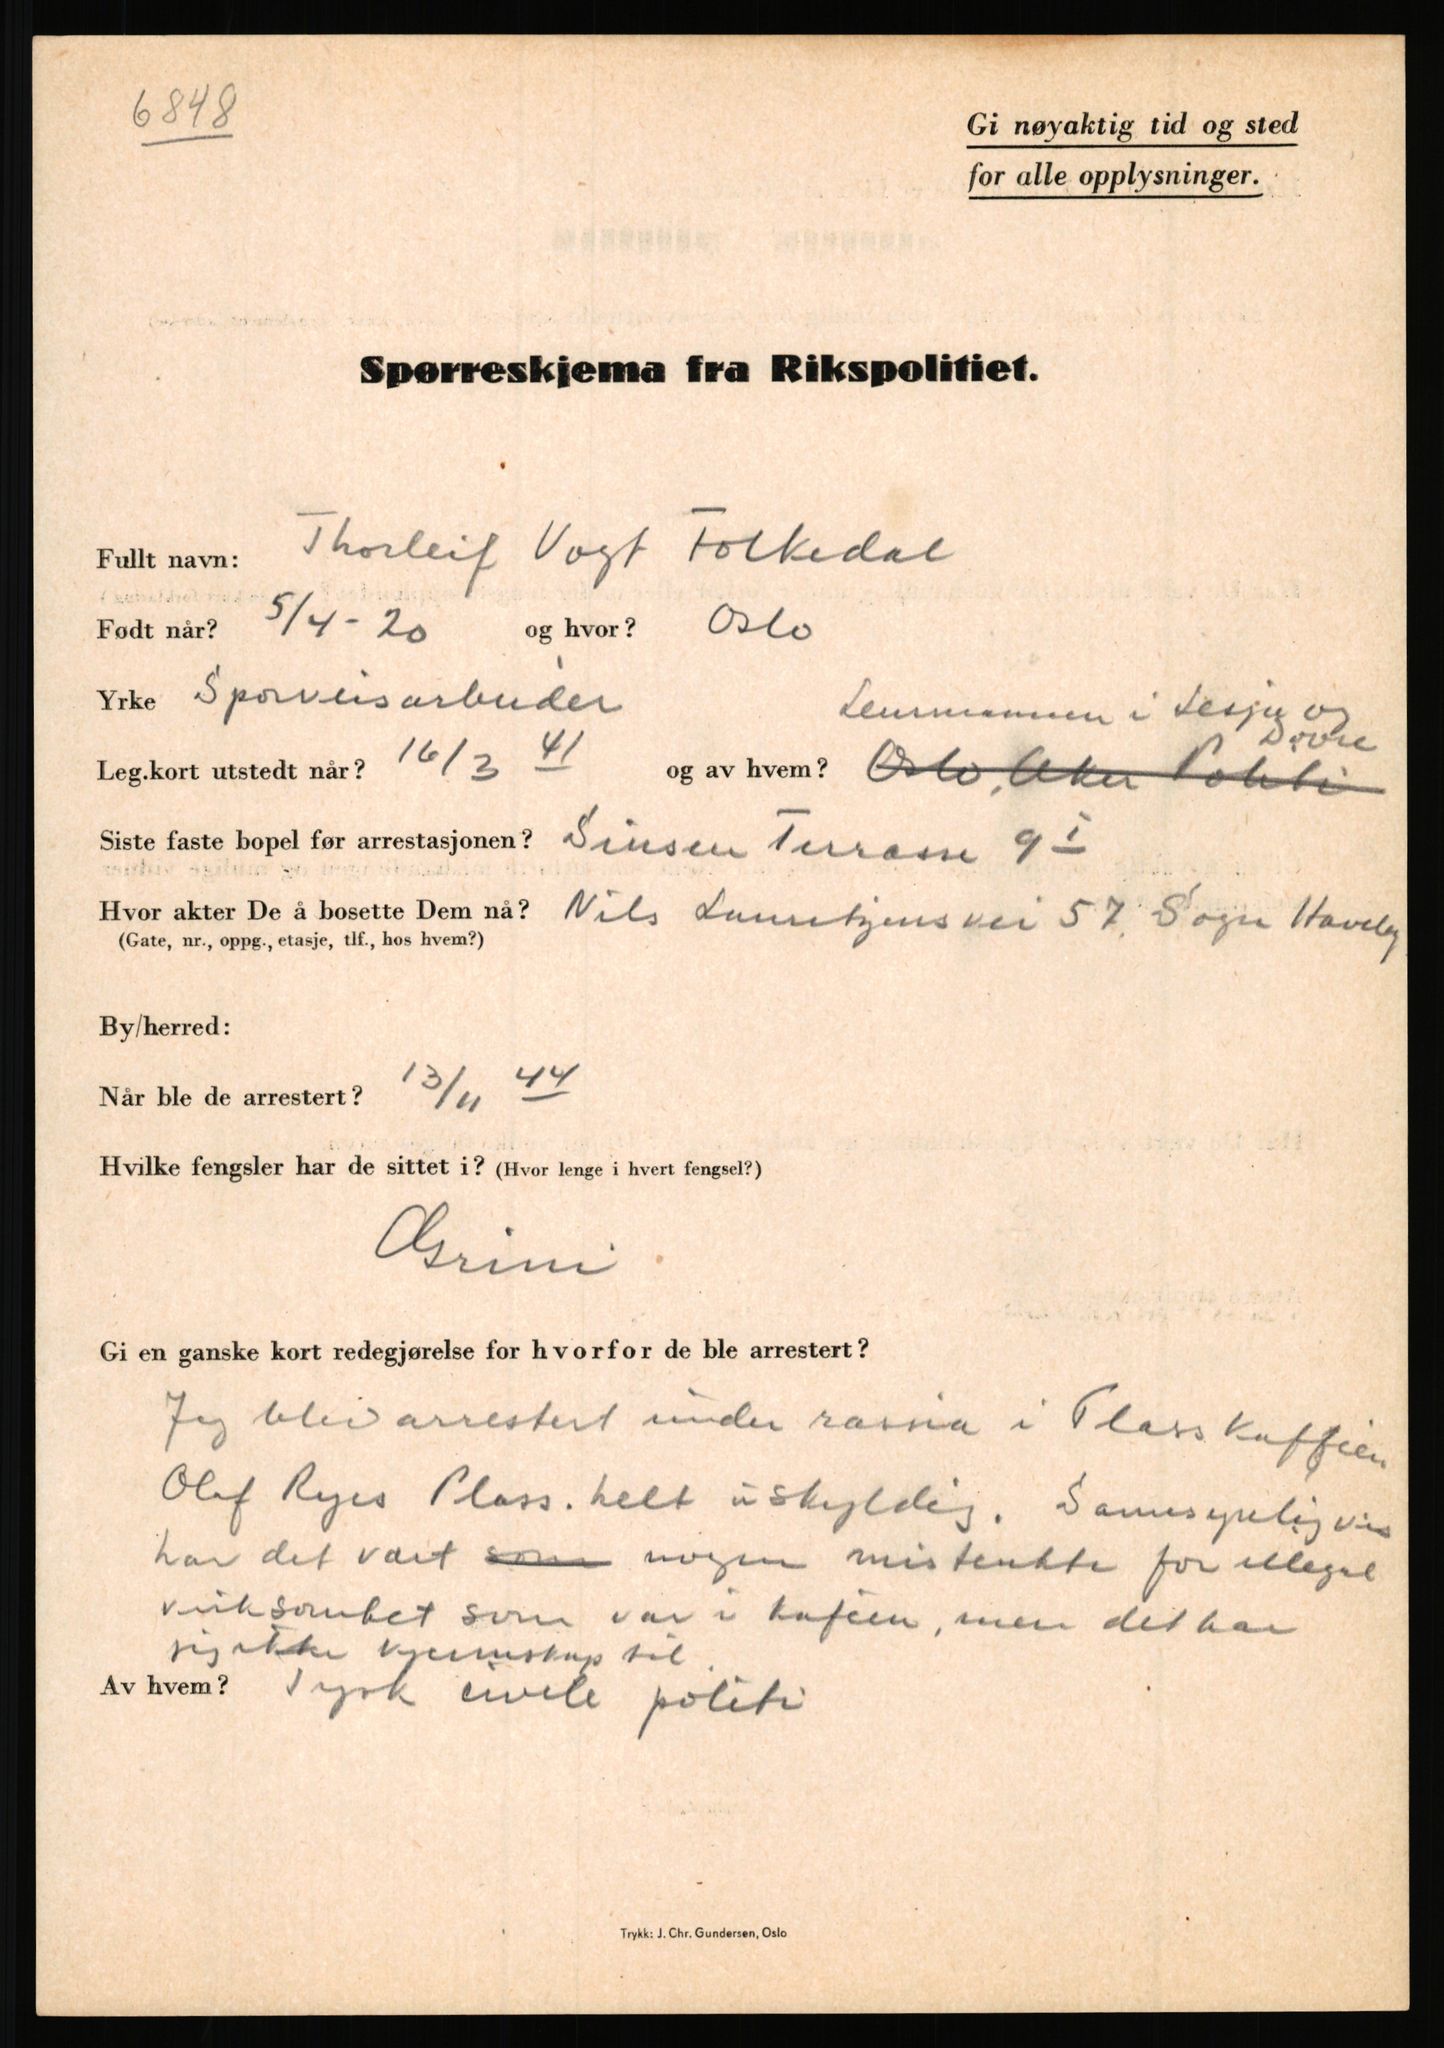 6848
Gi nøyaktig tid og sted
for alle opplysninger.
Spørreskjema fra Rikspolitiet.
Fullt navn: Thorleif Vogt Folkedal
Født når? 5/4-20 og hvor? Oslo
Yrke Sporveisarbeider
Lensmannen i Lesja og
Dovre
Leg.kort utstedt når? 16/3 41 og av hvem? Oslo, Aker Politi
Siste faste bopel før arrestasjonen? Sinsen Terrasse 9 I
Hvor akter De å bosette Dem nå? Nils Lauritzens vei 57. Sogn Haveby
(Gate, nr., oppg., etasje, tlf., hos hvem?)
By/herred:
Når ble de arrestert? 13/11 44
Hvilke fengsler har de sittet i? (Hvor lenge i hvert fengsel?)
Grini
Gi en ganske kort redegjørelse for hvorfor de ble arrestert?
Jeg blev arrestert under rassia i Plasskaffeen
Olaf Ryes Plass. helt uskyldig. Sannsynligvis
har det vært som nogen mistenkte for illegal
virksomhet som var i kafeen, men det har
jeg ikke kjennskap til.
Av hvem? Tysk civile politi
Trykk: J. Chr. Gundersen, Oslo